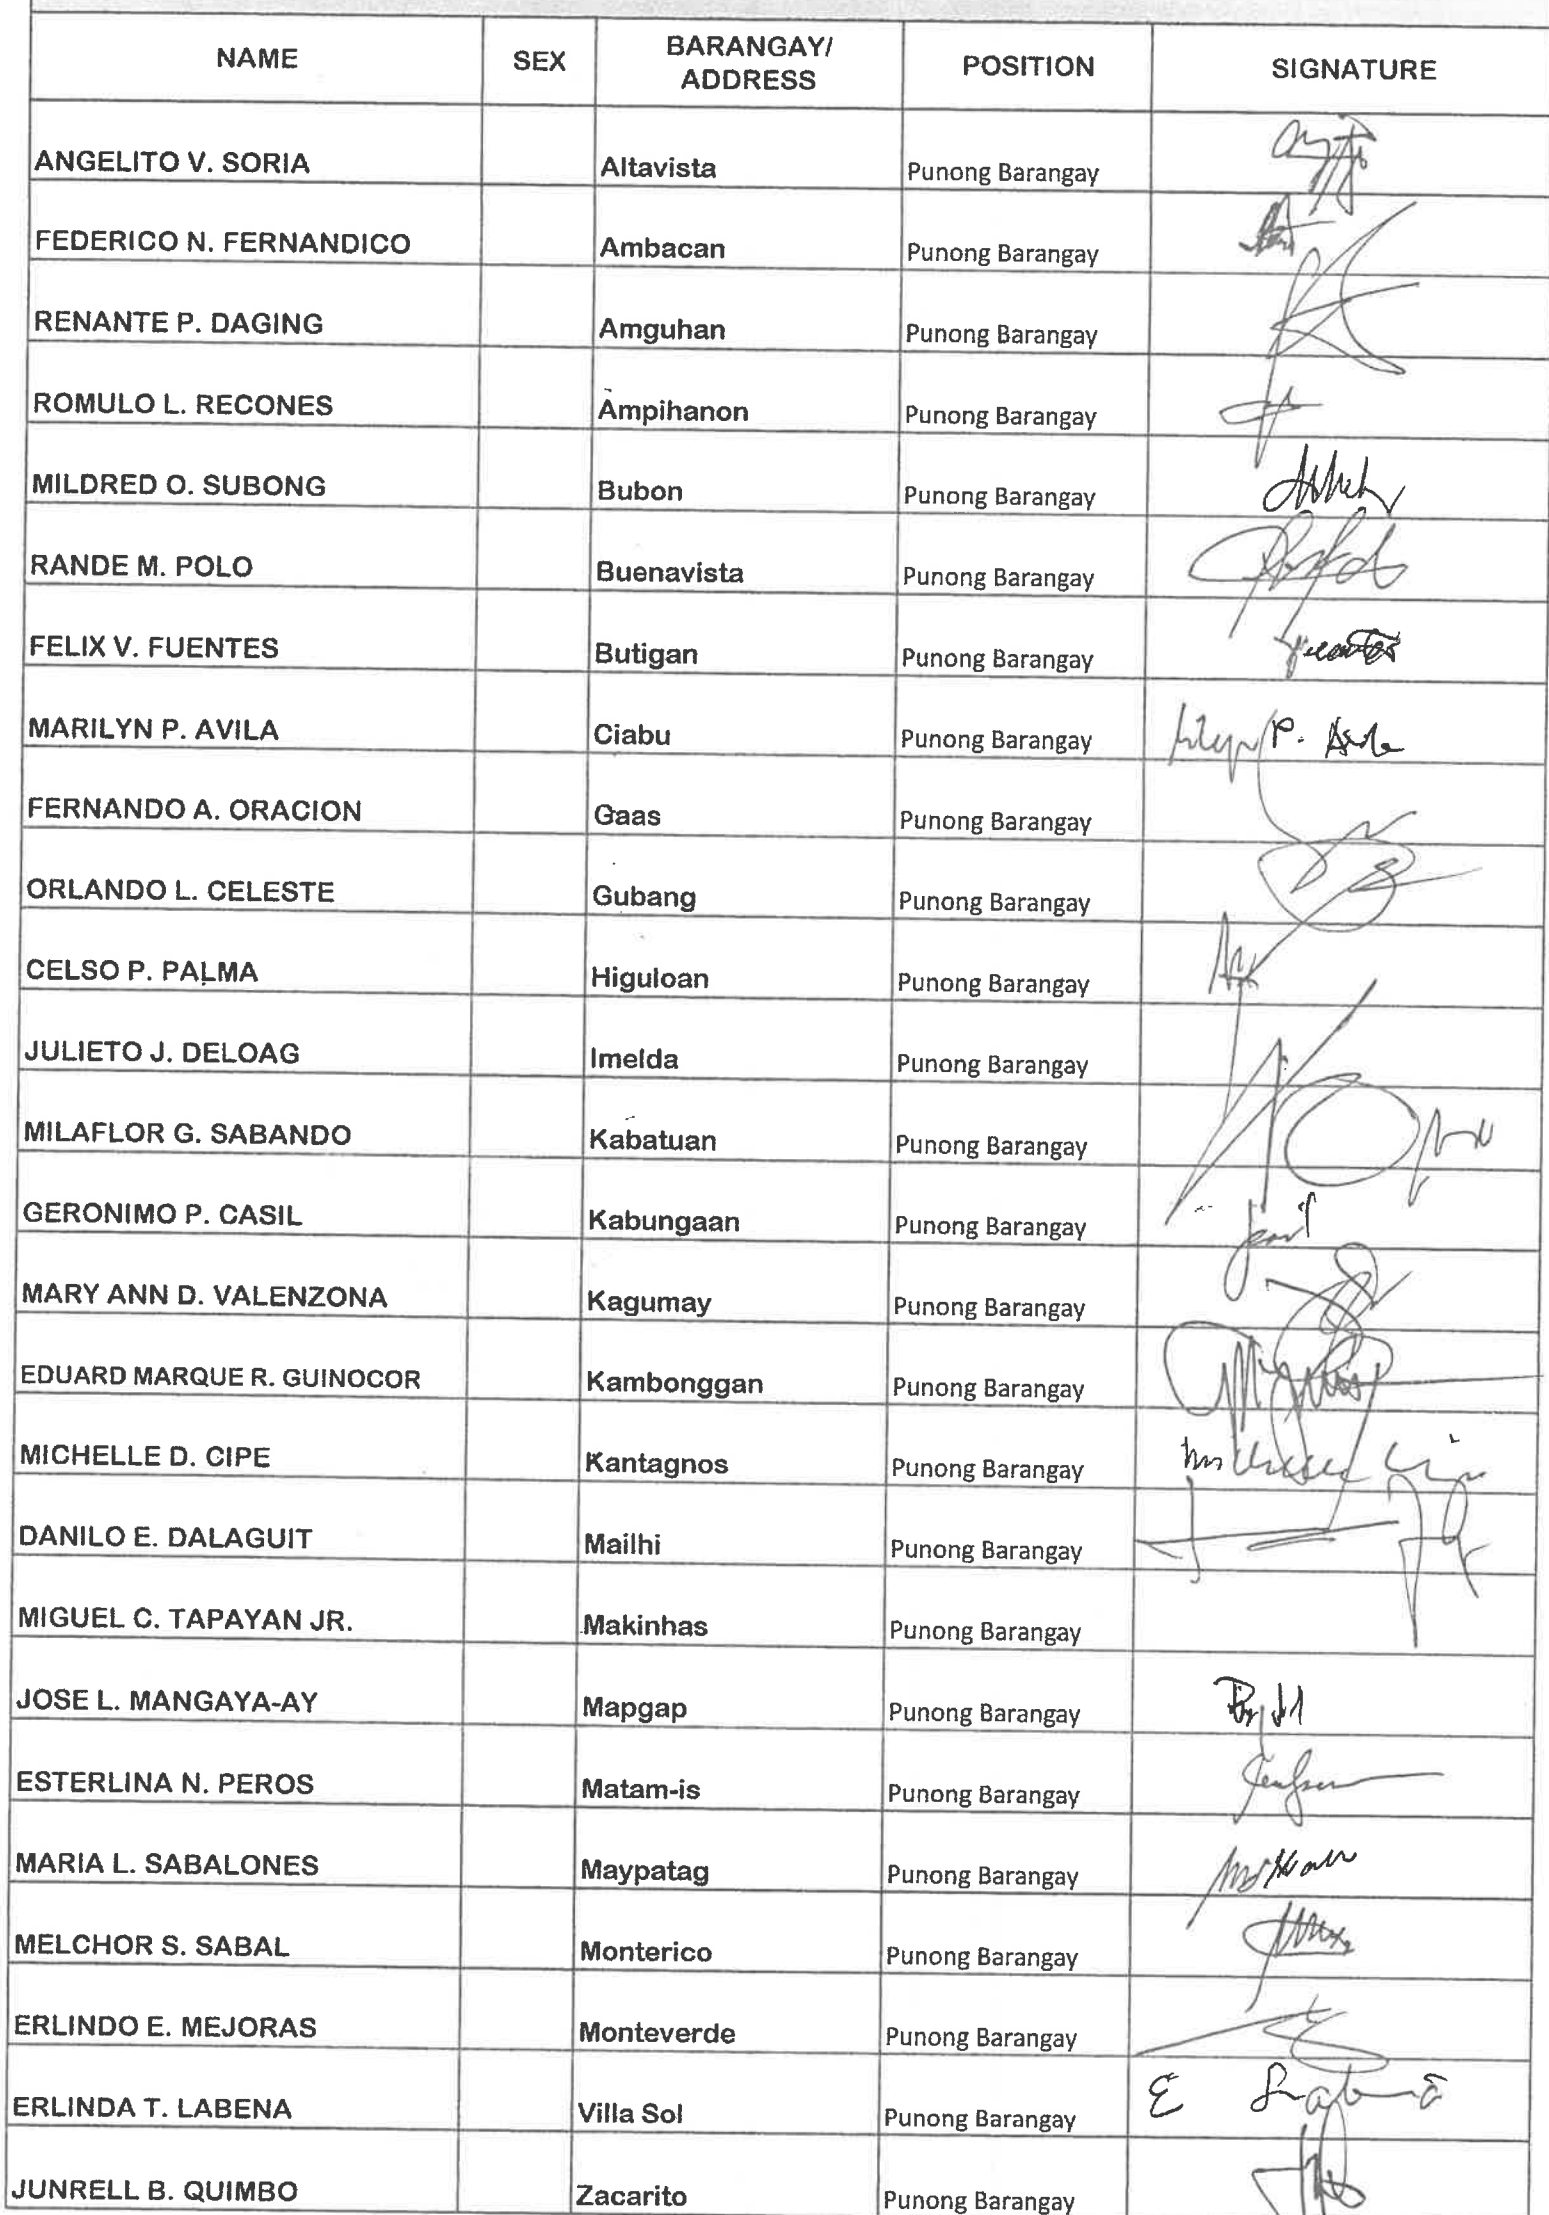 NAME SEX BARANGAY/ ADDRESS POSITION SIGNATURE
ANGELITO V. SORIA Altavista Punong Barangay
FEDERICO N. FERNANDICO Ambacan Punong Barangay
RENANTE P. DAGING Amguhan Punong Barangay
ROMULO L. RECONES Ampihanon Punong Barangay
MILDRED O. SUBONG Bubon Punong Barangay
RANDE M. POLO Buenavista Punong Barangay
FELIX V. FUENTES Butigan Punong Barangay
MARILYN P. AVILA Ciabu Punong Barangay
FERNANDO A. ORACION Gaas Punong Barangay
ORLANDO L. CELESTE Gubang Punong Barangay
CELSO P. PALMA Higuloan Punong Barangay
JULIETO J. DELOAG Imelda Punong Barangay
MILAFLOR G. SABANDO Kabatuan Punong Barangay
GERONIMO P. CASIL Kabungaan Punong Barangay
MARY ANN D. VALENZONA Kagumay Punong Barangay
EDUARD MARQUE R. GUINOCOR Kambonggan Punong Barangay
MICHELLE D. CIPE Kantagnos Punong Barangay
DANILO E. DALAGUIT Mailhi Punong Barangay
MIGUEL C. TAPAYAN JR. Makinhas Punong Barangay
JOSE L. MANGAYA-AY Mapgap Punong Barangay
ESTERLINA N. PEROS Matam-is Punong Barangay
MARIA L. SABALONES Maypatag Punong Barangay
MELCHOR S. SABAL Monterico Punong Barangay
ERLINDO E. MEJORAS Monteverde Punong Barangay
ERLINDA T. LABENA Villa Sol Punong Barangay
JUNRELL B. QUIMBO Zacarito Punong Barangay